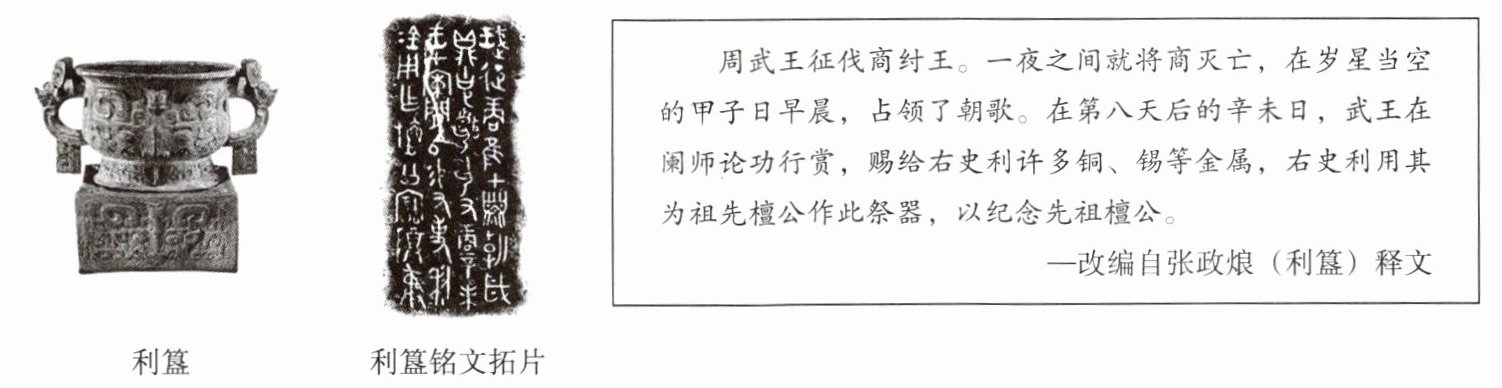 周武王征伐商纣王。一夜之间就将商灭亡，在岁星当空
的甲子日早晨，占领了朝歌。在第八天后的辛未日，武王在
阑师论功行赏，赐给右史利许多铜、锡等金属，右史利用其
为祖先檀公作此祭器，以纪念先祖檀公。
—改编自张政烺（利簋）释文
利簋
利簋铭文拓片